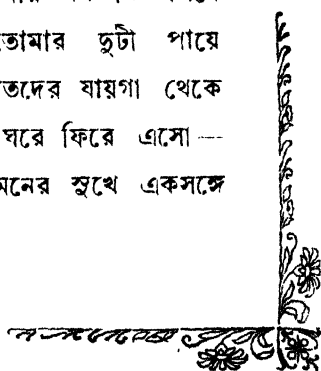 তোমার দুটী পায়ে
তদের যায়গা থেকে
ঘরে ফিরে এসো —
মনের সুখে একসঙ্গে